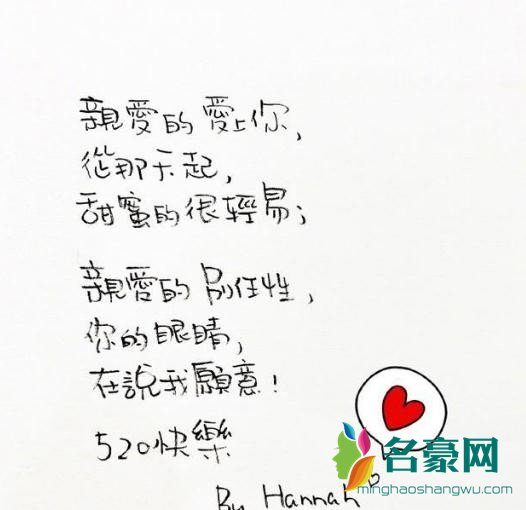 親愛的愛上你,
從那天起,
甜蜜的很輕易;
親愛的別任性,
你的眼睛,
在說我願意!
520快樂
By Hannah
名豪网
minghaoshangwu.com